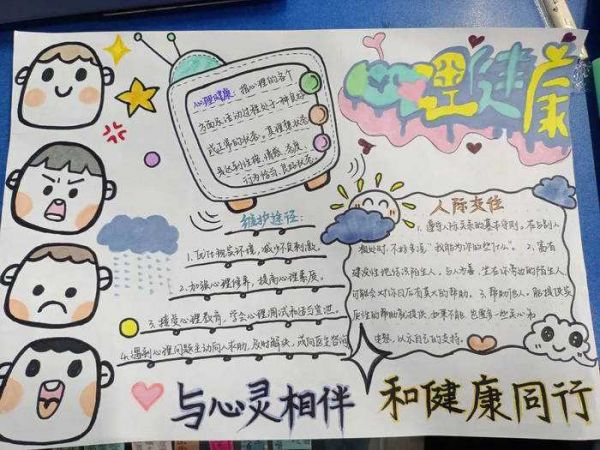 心理健康
心理健康：指心理的各个
方面及活动过程处于一种良好
或正常的状态。其理想状态
行为恰当、良好状态
维护途径：
1、
环境，减少不良刺激。
2、加强心理修养，提高心理素质。
3、接受心理教育，学会心理调试和
4、遇到心理问题主动向人求助，及时解决，或向医生咨询
人际交往
1、遵守人际关系的基本守则，在与别人
相处时，不妨多说“我能为你做些什么”。2、富有
建设性地结识陌生人，与人为善，坐在你旁边的陌生人，
可能会对你日后有莫大的帮助。3、帮助他人，能提供实
质性的帮助就提供，如果不能
以示自己的支持。
与心灵相伴
和健康同行